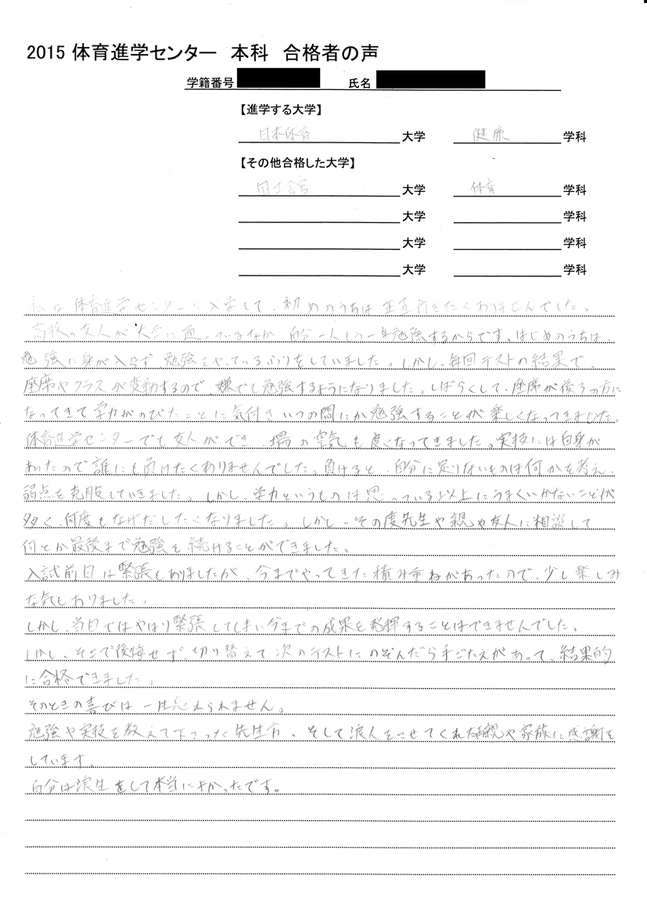 2015 体育進学センター 本科 合格者の声
学籍番号 氏名
【進学する大学】
日本体育 大学 健康 学科
【その他合格した大学】
国士舘 大学 体育 学科
大学 学科
大学 学科
大学 学科
私は体育進学センターに入学して、初めのうちは正直行きたくありませんでした。
高校の友人が大学に通っているなか、自分一人もう一年勉強するからです。はじめのうちは、
勉強に身が入らず勉強をやっているふりをしていました。しかし、毎回テストの結果で、
座席やクラスが変動するので嫌でも勉強するようになりました。しばらくして、座席が後ろの方に
なってきて学力がのびたことに気付きいつの間にか勉強することが楽しくなってきました。
体育進学センターでも友人ができ、場の空気も良くなってきました。実技には自身が
あったので誰にも負けたくありませんでした。負けると、自分に足りないものは何かを考え、
弱点を克服していきました。しかし、学力というものは思っている以上にうまくいかないことが
多く、何度もなげだしたくなりました。しかし、その度先生や親や友人に相談して
何とか最後まで勉強を続けることができました。
入試前日は緊張もありましたが、今までやってきた積み重ねがあったので、少し楽しみ
な気もありました。
しかし、当日ではやはり緊張してしまい今までの成果を発揮することはできませんでした。
しかし、そこで後悔せず、切り替えて次のテストにのぞんだら手ごたえがあって、結果的
に合格できました。
そのときの喜びは一生忘れられません。
勉強や実技を教えて下さった先生方、そして浪人をさせてくれた両親や家族に感謝を
しています。
自分は浪生をして本当によかったです。